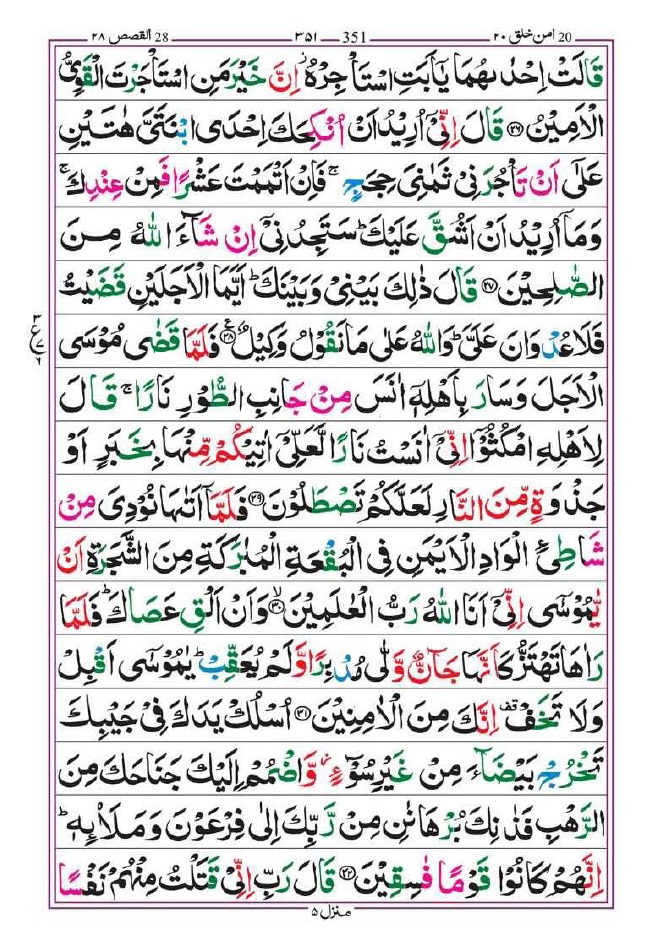 28 القصص ۲۸ ۳۵۱ 351 20 امن خلق ۲۰
قَالَتْ اِحْدٰىهُمَا يٰۤاَبَتِ اسْتَاْجِرْهُ ؗ اِنَّ خَيْرَ مَنِ اسْتَاْجَرْتَ الْقَوِيُّ
الْاَمِيْنُ ۝۲۶ قَالَ اِنِّيْۤ اُرِيْدُ اَنْ اُنْكِحَكَ اِحْدَى ابْنَتَيَّ هٰتَيْنِ
عَلٰۤى اَنْ تَاْجُرَنِيْ ثَمٰنِيَ حِجَجٍ ۚ فَاِنْ اَتْمَمْتَ عَشْرًا فَمِنْ عِنْدِكَ ۚ
وَمَاۤ اُرِيْدُ اَنْ اَشُقَّ عَلَيْكَ ؕ سَتَجِدُنِيْۤ اِنْ شَآءَ اللّٰهُ مِنَ
الصّٰلِحِيْنَ ۝۲۷ قَالَ ذٰلِكَ بَيْنِيْ وَبَيْنَكَ ؕ اَيَّمَا الْاَجَلَيْنِ قَضَيْتُ
فَلَا عُدْوَانَ عَلَيَّ ؕ وَاللّٰهُ عَلٰى مَا نَقُوْلُ وَكِيْلٌ ۝۲۸ فَلَمَّا قَضٰى مُوْسَى
الْاَجَلَ وَسَارَ بِاَهْلِهٖۤ اٰنَسَ مِنْ جَانِبِ الطُّوْرِ نَارًا ۚ قَالَ
لِاَهْلِهِ امْكُثُوْۤا اِنِّيْۤ اٰنَسْتُ نَارًا لَّعَلِّيْۤ اٰتِيْكُمْ مِّنْهَا بِخَبَرٍ اَوْ
جَذْوَةٍ مِّنَ النَّارِ لَعَلَّكُمْ تَصْطَلُوْنَ ۝۲۹ فَلَمَّاۤ اَتٰىهَا نُوْدِيَ مِنْ
شَاطِئِ الْوَادِ الْاَيْمَنِ فِي الْبُقْعَةِ الْمُبٰرَكَةِ مِنَ الشَّجَرَةِ اَنْ
يّٰمُوْسٰۤى اِنِّيْۤ اَنَا اللّٰهُ رَبُّ الْعٰلَمِيْنَ ۝۳۰ وَاَنْ اَلْقِ عَصَاكَ ؕ فَلَمَّا
رَاٰهَا تَهْتَزُّ كَاَنَّهَا جَآنٌّ وَّلّٰى مُدْبِرًا وَّلَمْ يُعَقِّبْ ؕ يٰمُوْسٰۤى اَقْبِلْ
وَلَا تَخَفْ ۫ اِنَّكَ مِنَ الْاٰمِنِيْنَ ۝۳۱ اُسْلُكْ يَدَكَ فِيْ جَيْبِكَ
تَخْرُجْ بَيْضَآءَ مِنْ غَيْرِ سُوْٓءٍ ؗ وَّاضْمُمْ اِلَيْكَ جَنَاحَكَ مِنَ
الرَّهْبِ فَذٰنِكَ بُرْهَانٰنِ مِنْ رَّبِّكَ اِلٰى فِرْعَوْنَ وَمَلَا۠ئِهٖ ؕ
اِنَّهُمْ كَانُوْا قَوْمًا فٰسِقِيْنَ ۝۳۲ قَالَ رَبِّ اِنِّيْ قَتَلْتُ مِنْهُمْ نَفْسًا
منزل ۵